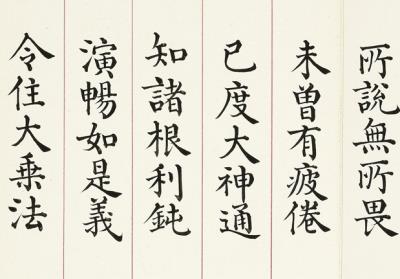 所說無所畏
未曾有疲倦
已度大神通
知諸根利鈍
演暢如是義
令住大乗法